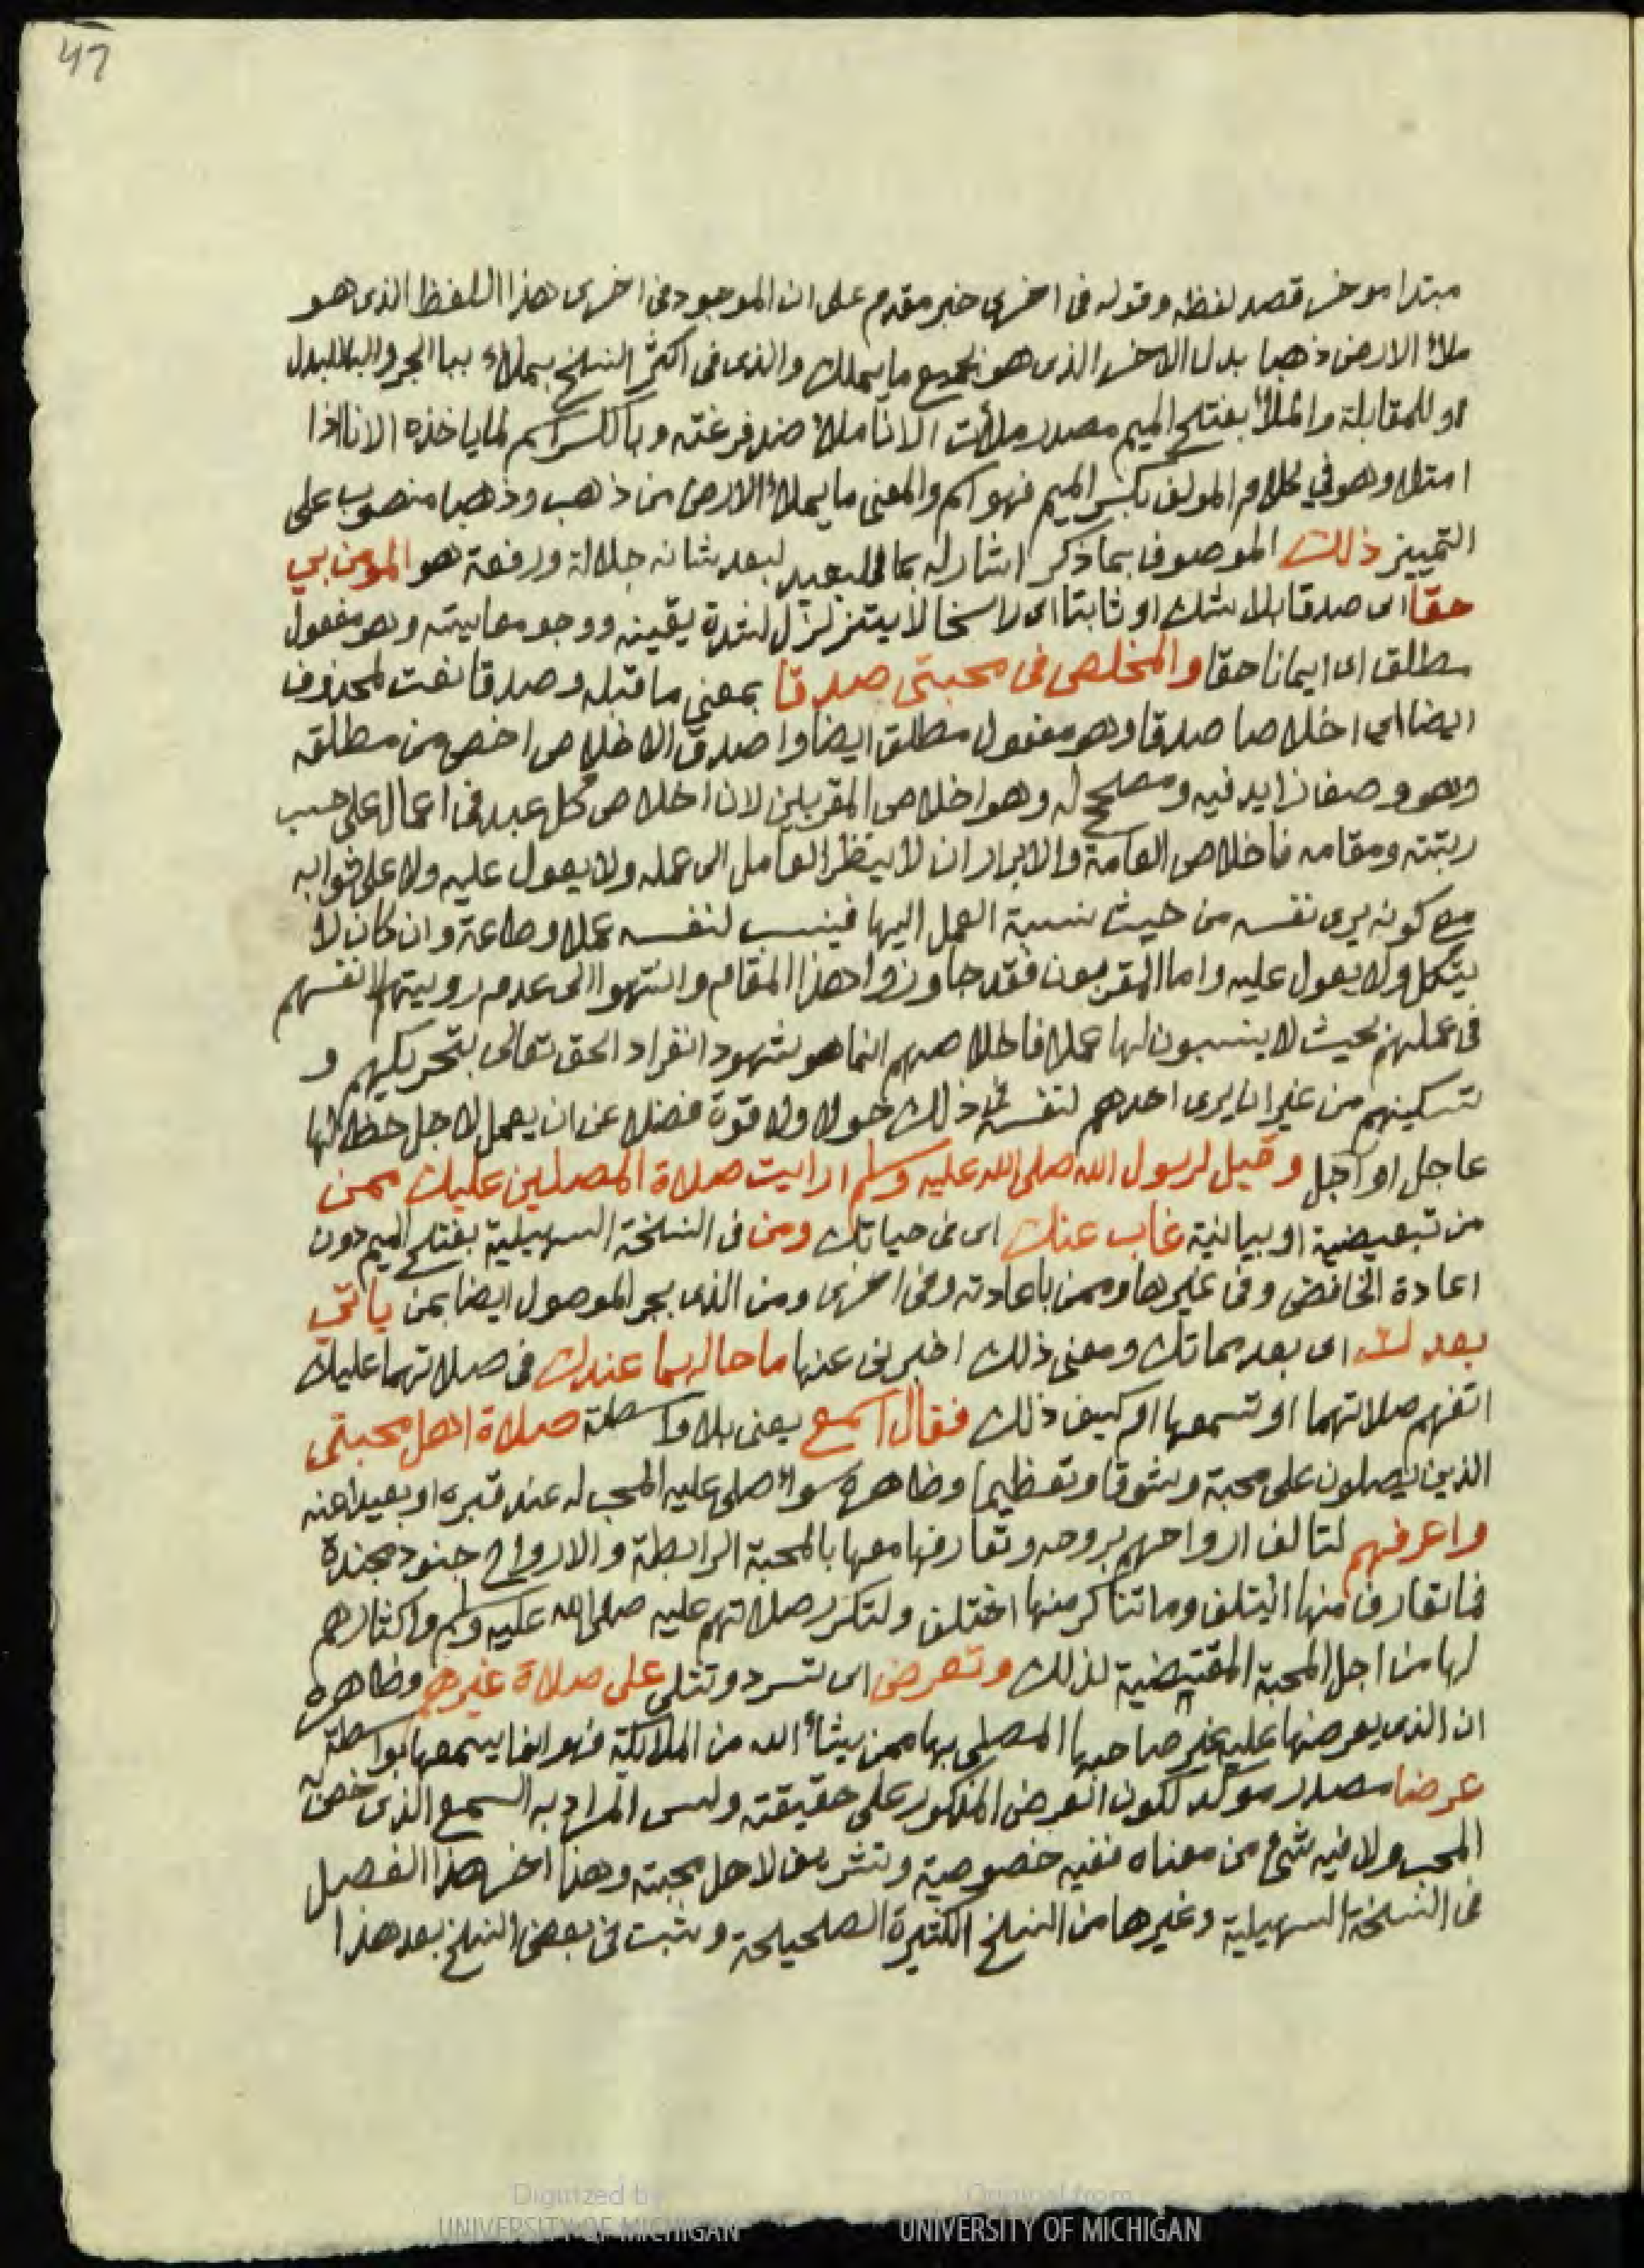 47
مبتدا موخر قصد لفظه وقوله فى اخرى خبر مقدم على ان الموجود فى اخرى هذا اللفظ الذى هو
ملأ الارض ذهبا بدل الاخر الذى هو بجميع ما يملك والذى فى اكثر النسخ بملاء ببا الجر والبا للبدل
او للمقابلة والملأ بفتح الميم مصدر ملأت الانا ملأ ضد فرغته وبالكسر اسم لما ياخذه الانا اذا
امتلا وهو في كلام المولف بكسر الميم فهو اسم والمعنى ما يملأ الارض من ذهب وذهبا منصوب على
التمييز ذلك الموصوف بما ذكر اشار له بما للبعيد لبعد شانه جلالة ورفعة هو المومن بي
حقا اى صدقا بلا شك او ثابتا اى راسخا لا يتزلزل لشدة يقينه ووجو معاينته وهو مفعول
مطلق اى ايمانا حقا والمخلص فى محبتى صدقا بمعنى ما قبله وصدقا نعت لمحذوف
ايضا اى اخلاصا صدقا وهو مفعول مطلق ايضا واصدق الاخلاص اخص من مطلقه
وهو وصف زايد فيه ومصحح له وهو اخلاص المقربين لان اخلاص كل عبد فى اعماله على حسب
رتبته ومقامه فاخلاص العامة والابرار ان لا ينظر العامل الى عمله ولا يعول عليه ولا على ثوابه
مع كونه يرى نفسه من حيث نسبة العمل اليها فينسب لنفسه عملا وطاعة وان كان لا
يتكل ولا يعول عليه واما المقربون فقد جاوزوا هذا المقام وانتهوا الى عدم رويتهم لانفسهم
فى عملهم بحيث لا ينسبون لها عملا فاخلاصهم انما هو شهود انفراد الحق تعالى بتحريكهم و
تسكينهم من غير ان يرى احدهم لنفسه فى ذلك حولا ولا قوة فضلا عن ان يعمل لاجل حظ لها
عاجل او اجل وقيل لرسول الله صلى الله عليه وسلم ارايت صلاة المصلين عليك ممن
من تبعيضية او بيانية غاب عنك اى فى حياتك ومن فى النسخة السهيلية بفتح الميم دون
اعادة الخافض وفى غيرها وممن باعادته وفى اخرى ومن الذى بجر الموصول ايضا بمن ياتي
بعدك اى بعد مماتك ومعنى ذلك اخبرنى عنها ما حالهما عندك فى صلاتهما عليك
اتفهم صلاتهما او تسمعها ام كيف ذلك فقال اسمع يعنى بلا واسطة صلاة اهل محبتى
الذين يصلون على محبة وشوقا وتعظيما وظاهره سواء صلى عليه المحب له عند قبره او بعيدا عنه
واعرفهم لتالف ارواحهم بروحه وتعارفها معها بالمحبة الرابطة والارواح جنود مجندة
فما تعارف منها ائتلف وما تناكر منها اختلف ولتكرر صلاتهم عليه صلى الله عليه وسلم واكثارهم
لها من اجل المحبة المقتضية لذلك وتعرض اى تسرد وتتلى على صلاة غيرهم وظاهره
ان الذى يعرضها عليه غير صاحبها المصلى بها ممن يشاء الله من الملائكة فهو انما يسمعها بواسطة
عرضا مصدر موكد لكون العرض المذكور على حقيقته وليس المراد به السمع الذى خص به
المحب ولا فيه شئ من معناه ففيه خصوصية وتشريف لاهل محبته وهذا اخر هذا الفصل
فى النسخة السهيلية وغيرها من النسخ الكثيرة الصحيحة وثبت فى بعض النسخ بعد هذا
Digitized by
UNIVERSITY OF MICHIGAN
Original from
UNIVERSITY OF MICHIGAN